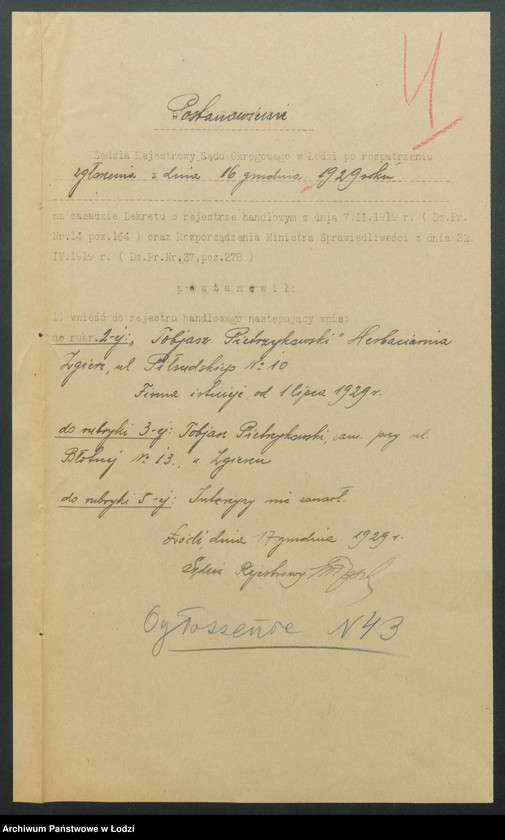 4
Postanowienie
Sędzia Rejestrowy Sądu Okręgowego w Łodzi po rozpatrzeniu
zgłoszenia z dnia 16 grudnia 1929 roku
na zasadzie Dekretu o rejestrze handlowym z dnia 7.II.1919 r. ( Dz.Pr.
Nr.14 poz.164 ) oraz Rozporządzenia Ministra Sprawiedliwości z dnia 22.
IV.1919 r. ( Dz.Pr.Nr.37,poz.278 )
p o s t a n o w i ł:
1) wnieść do rejestru handlowego następujący wpis:
do rubr. 2-ej: „Tobjasz Pietrzykowski" Herbaciarnia
Zgierz, ul Piłsudskiego No 10
Firma istnieje od 1 lipca 1929 r.
do rubryki 3-ej: Tobjasz Pietrzykowski, zam. przy ul.
Błotnej No 13, w Zgierzu
do rubryki 5-ej: Intercyzy nie zawarł.
Łódź, dnia 17 grudnia 1929 r.
Sędzia Rejestrowy
Ogłoszenie N 43
Archiwum Państwowe w Łodzi